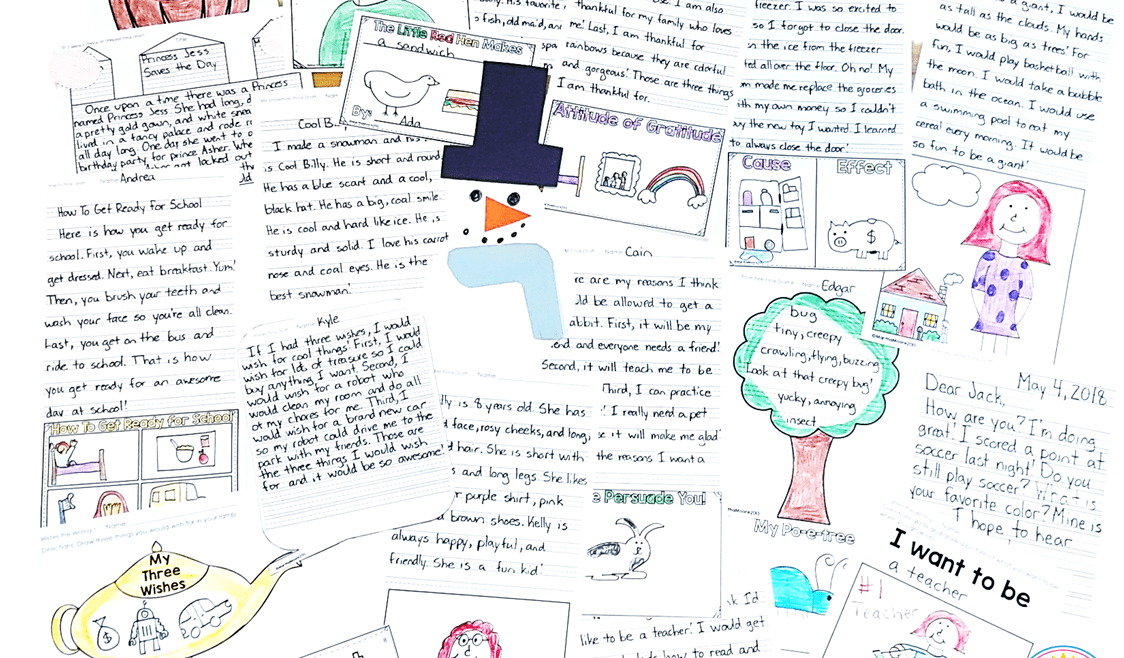 Princess Jess
Saves the Day
Once upon a time there was a Princess
named Princess Jess. She had long,
a pretty gold gown, and white
lived in a fancy palace and rode
all day long. One day she went to
birthday party for prince Asher.
was locked out
Andrea
How To Get Ready for School
Here is how you get ready for
school. First, you wake up and
get dressed. Next, eat breakfast. Yum!
Then, you brush your teeth and
wash your face so you're all clean.
Last, you get on the bus and
ride to school. That is how
you get ready for an awesome
day at school!
How To Get Ready For School
My
Three
Wishes
$
The Little Red Hen Makes
a sandwich
By: Ada
Cool
I made a snowman and
is Cool Billy. He is short and round.
He has a blue scarf and a cool,
black hat. He has a big, coal smile.
He is cool and hard like ice. He is
sturdy and solid. I love his carrot
nose and coal eyes. He is the
best snowman!
Kyle
If I had three wishes, I would
wish for cool things! First, I would
wish for lots of treasure so I could
buy anything I want. Second, I
would wish for a robot who
would clean my room and do all
of my chores for me. Third, I
would wish for a brand new car
so my robot could drive me to the
park with my friends. Those are
the three things I would wish
for and it would be so awesome!
I am also
thankful for my family who loves
me! Last, I am thankful for
rainbows because they are colorful
and gorgeous! Those are three things
I am thankful for.
Attitude of Gratitude
freezer. I was so excited to
so I forgot to close the door.
the ice from the freezer
all over the floor. Oh no! My
made me replace the groceries
with my own money so I couldn't
buy the new toy I wanted. I learned
to always close the door!
Cause
Effect
$
a giant, I would be
as tall as the clouds. My hands
would be as big as trees! For
fun, I would play basketball with
the moon. I would take a bubble
bath in the ocean. I would use
a swimming pool to eat my
cereal every morning. It would be
so fun to be a giant!
Cain
are my reasons I think
be allowed to get a
First, it will be my
and everyone needs a friend!
Second, it will teach me to be
Third, I can practice
I really need a pet
it will make me glad
the reasons I want a
Persuade You!
is 8 years old. She has
face, rosy cheeks, and long,
hair. She is short with
and long legs. She likes
purple shirt, pink
brown shoes. Kelly is
always happy, playful, and
friendly. She is a fun kid!
Edgar
bug
tiny, creepy
crawling, flying, buzzing
Look at that creepy bug!
yucky, annoying
insect
My Po-e-tree
May 4, 2018
Dear Jack,
How are you? I'm doing
great! I scored a point at
soccer last night! Do you
still play soccer? What is
your favorite color? Mine is
I hope to hear
I want to be
a teacher
#1
Teacher
I'd
like to be a teacher! I would get
how to read and